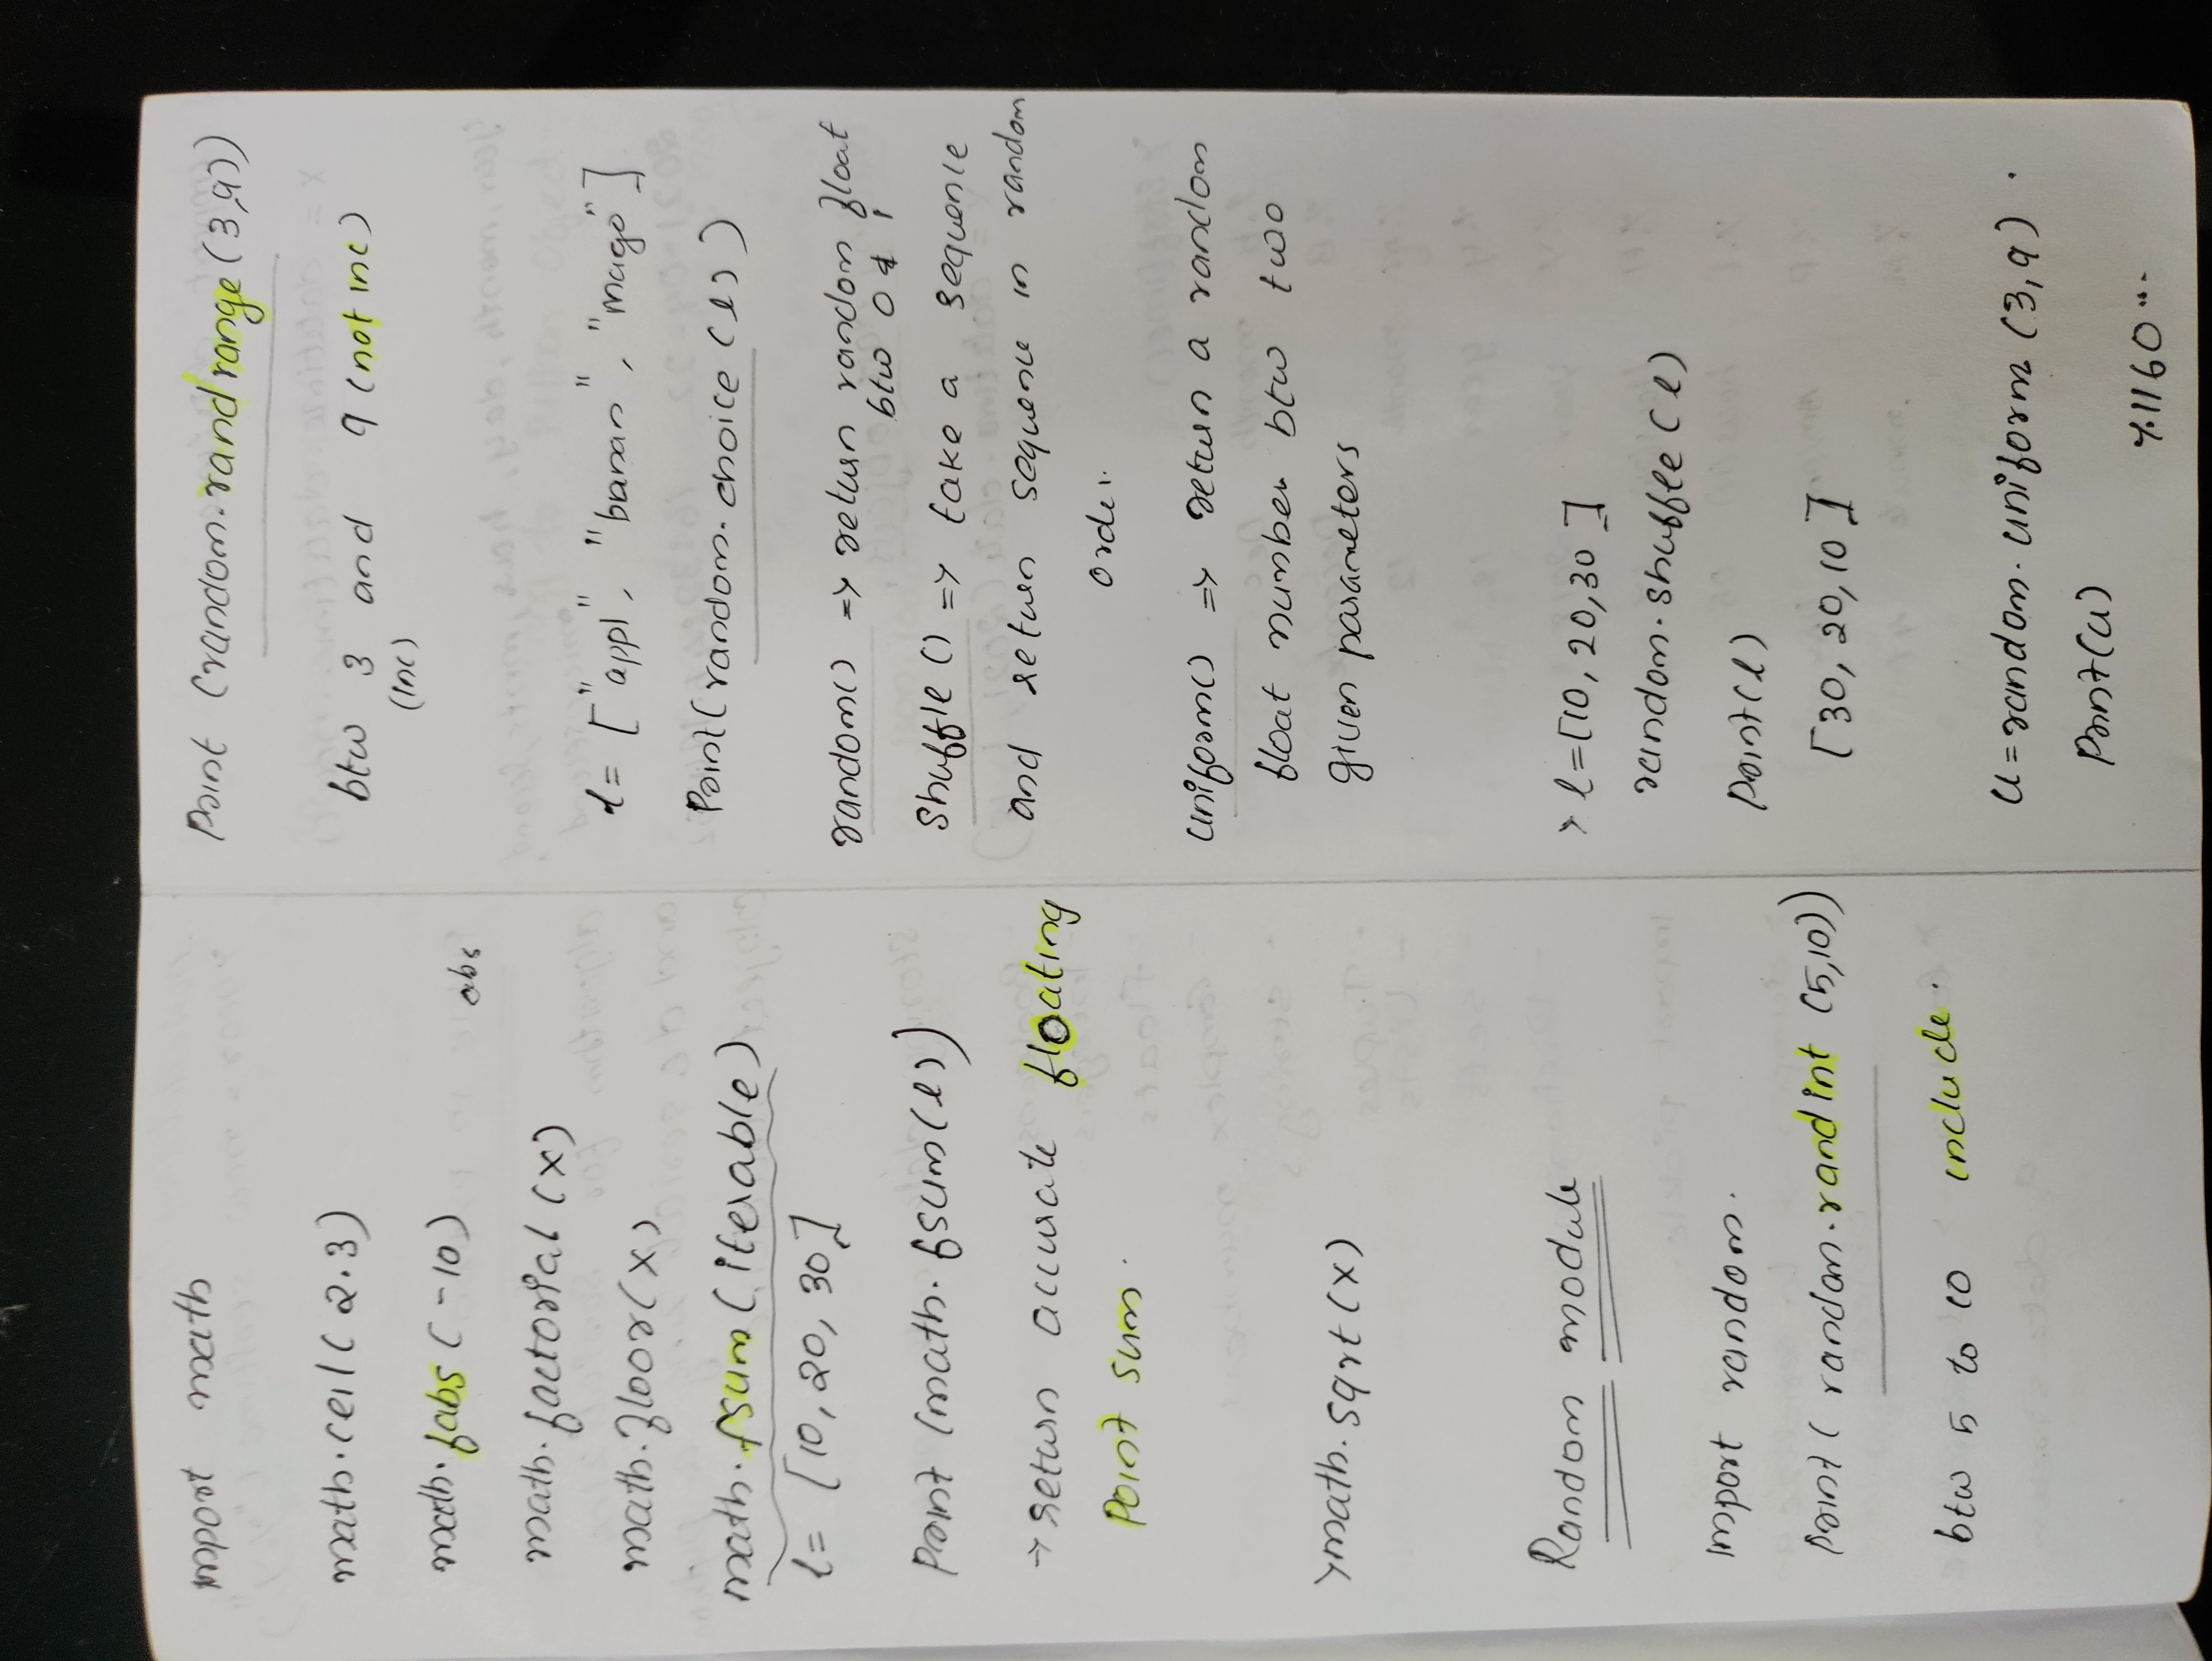 import math
math.ceil(2.3)
math.fabs(-10) abs
math.factorial(x)
math.floor(x)
math.fsum(iterable)
l= [10, 20, 30]
Print (math.fsum(l))
→ return accurate floating
Point sum.
>math.sqrt(x)
Random module
import random.
Print( random.randint (5,10))
btw 5 to 10 include.
Print (random.randrange(3,9))
btw 3 and 9 (not inc)
(inc)
l= ["appl", "banan", "mago"]
Print(random.choice(l))
random() => return random float
btw 0 & 1
Shuffle() => take a sequence
and return sequence in random
order.
uniform() => return a random
float number btw two
given parameters
> l=[10, 20,30]
random.shuffle(l)
Print(l)
[30, 20,10]
U=random.uniform(3,9).
Print(U)
7.1160...